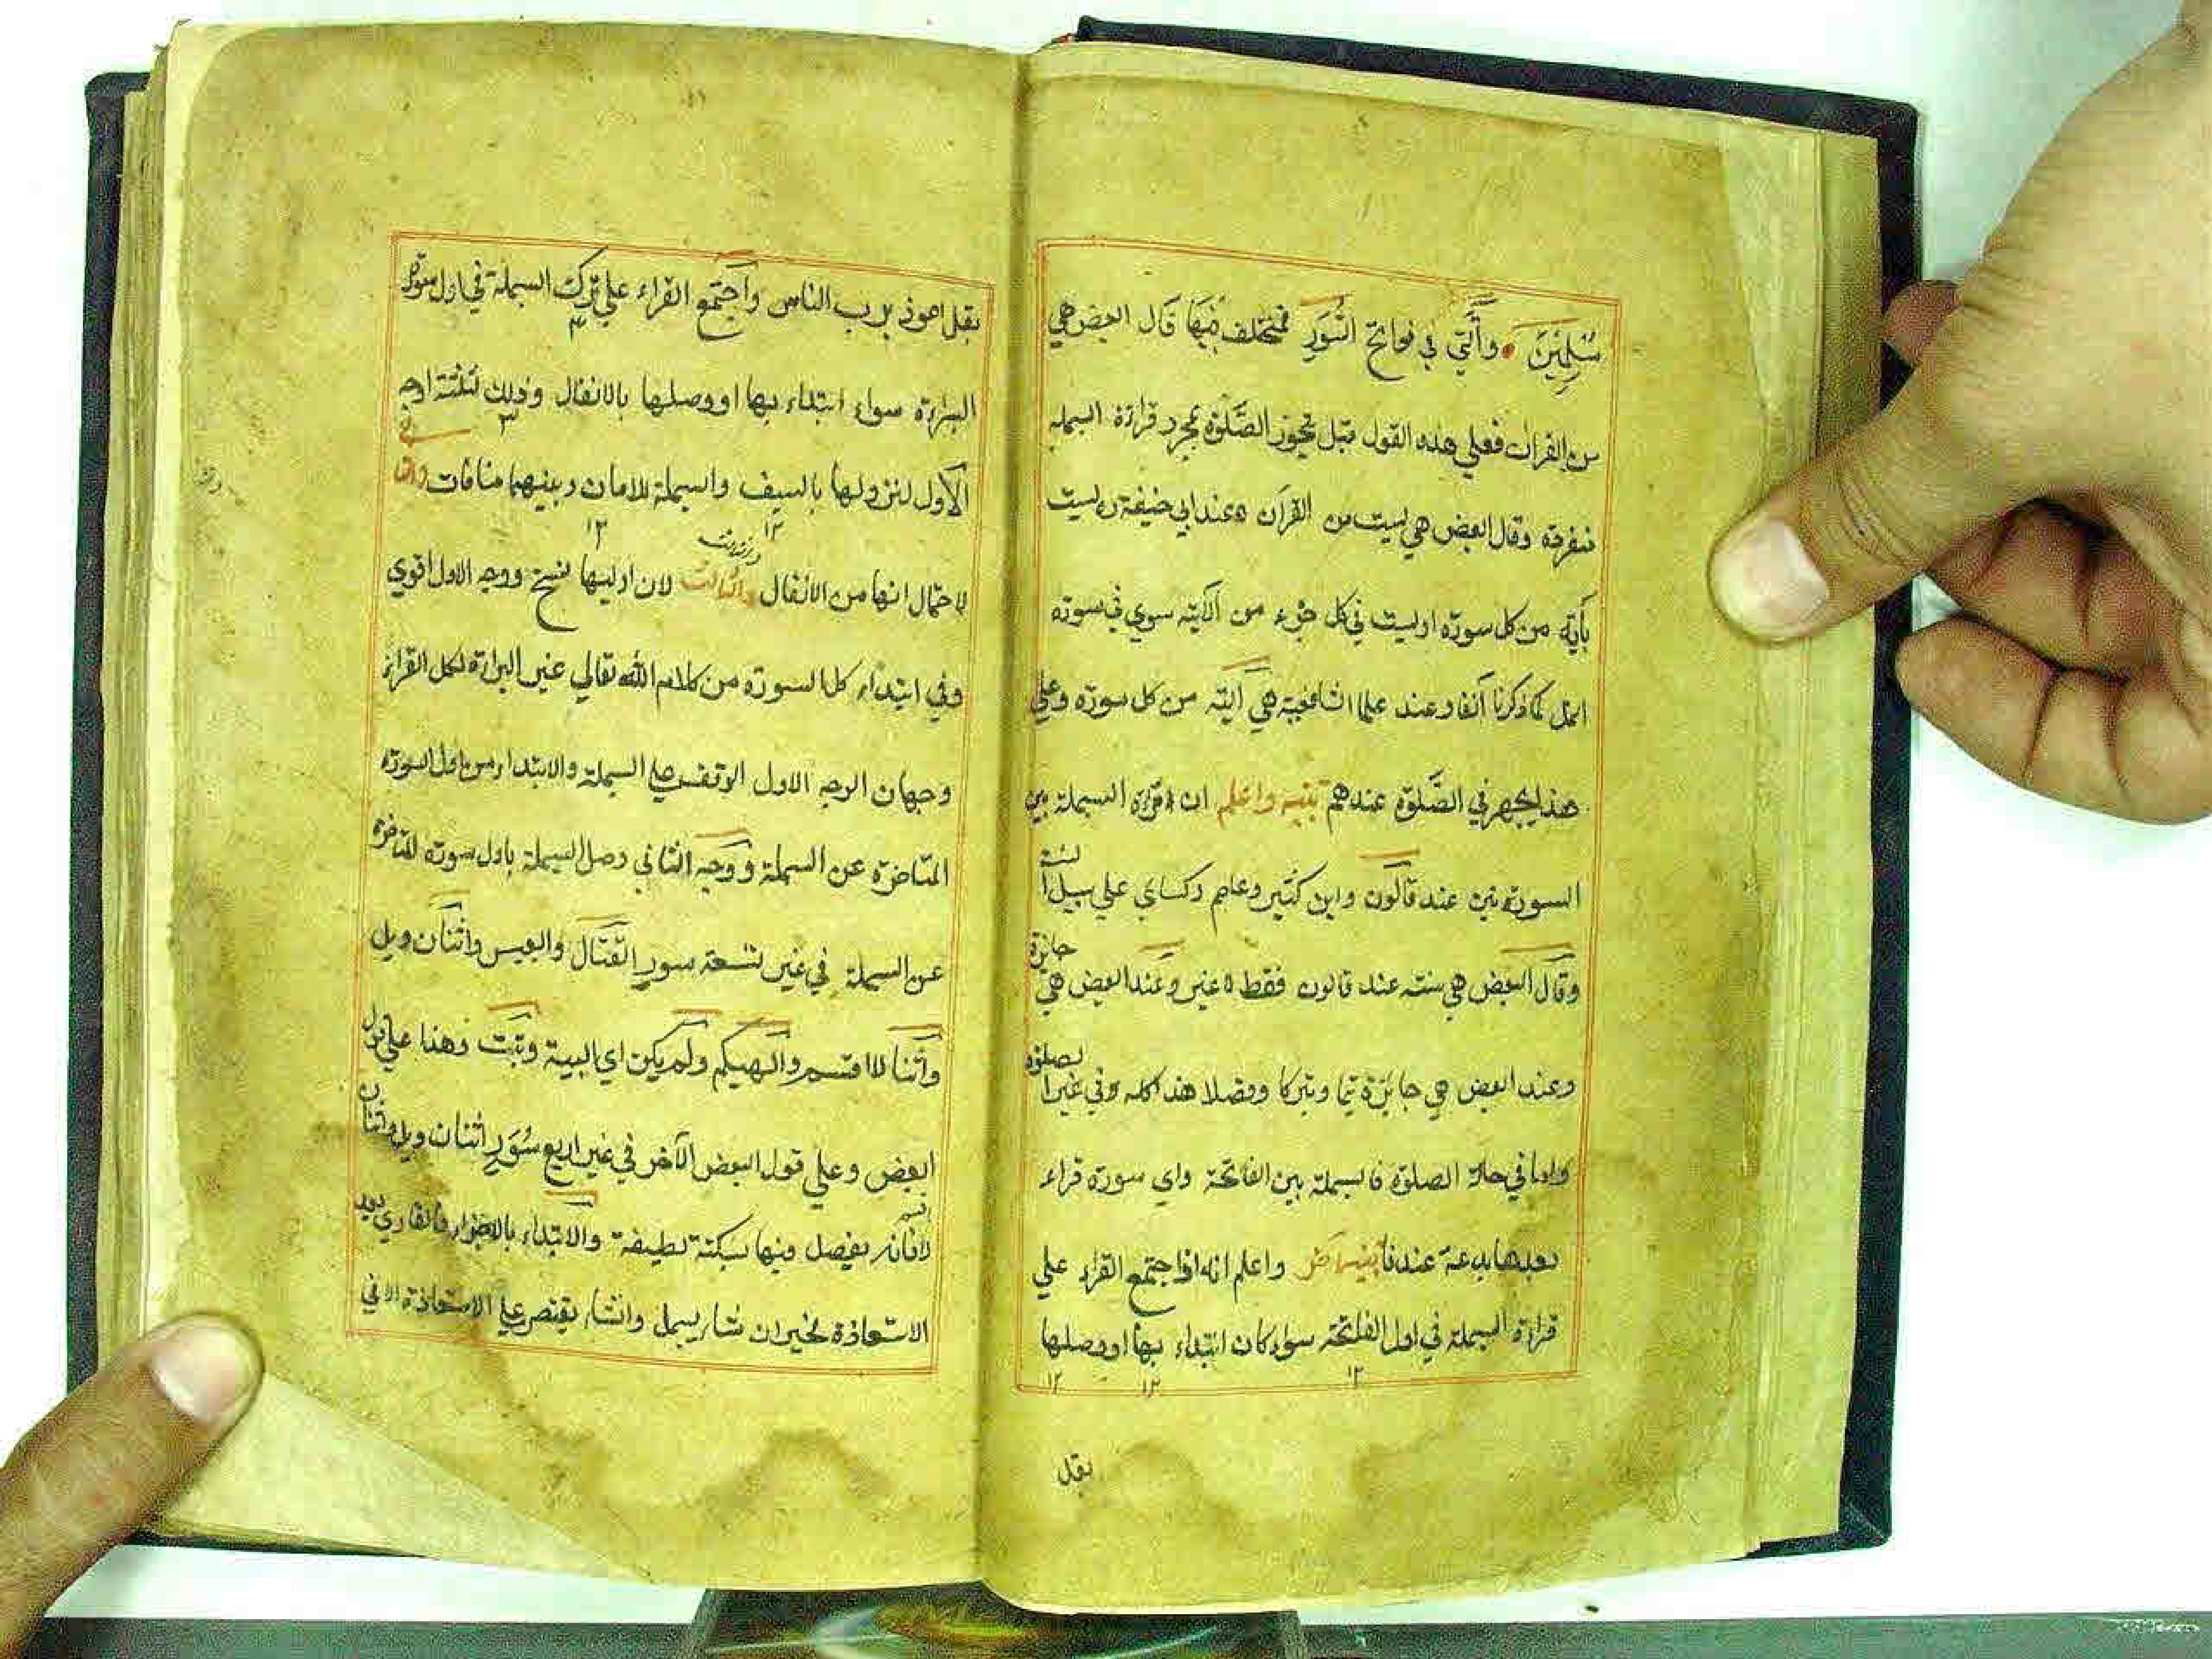 مُسْلِمِيْنَ وَالَّتِي فِي فواتح السُّوَرِ فمختلف فِيْهَا قَال البعض هي
من القرات فعلي هذه القول قبل تجوز الصَّلٰوة بمجرد قراءة البسملة
منفردة وقال البعض هي ليست من القرآن وعند ابي حنيفة رح ليست
بأية من كل سورة او ليست في كل جزء من الآية سوي في سورة
النمل كما ذكرنا آنفا وعند علماء الشافعية هي آيَة من كل سورة وعلي
هذا يجهر في الصَّلٰوة عندهم تنبيه واعلم ان قراءة البسملة بين
السورتين عند قالون وابن كثير وعاصم وكساي علي سبيل السنة
وقال البعض هي سنة عند قالون فقط لا غير وعند البعض هي جائزة
وعند البعض هي جايزة تيمنا وتبركا وفضلا هذا كله في غير الصلوة
واما في حالة الصلوة فالبسملة بين الفاتحة واي سورة قراء
بعدها بدعة عندنا واعلم انه اذا اجتمع القراء علي
قراءة البسملة في اول الفاتحة سواء كان ابتداء بها او وصلها
١٢ ١٢ ١٢
بقل
بقل اعوذ برب الناس واجتمع القراء علي ترك البسملة في اول سورة
البراءة سواء ابتداء بها او وصلها بالانفال وذلك لثلثة اوجه
الاول لنزولها بالسيف والبسملة للامان وبينهما منافات
لاحتمال انها من الانفال والثالث لان اوليها نسخ ووجه الاول اقوي
وفي ابتداء كل السورة من كلام الله تعالي غير البراءة لكل القراء
وجهان الوجه الاول الوقف علي البسملة والابتداء من اول السورة
المتاخرة عن البسملة ووجه الثاني وصل البسملة باول سورة المتاخرة
عن البسملة في غير تسعة سور القتال والعبس واثنان ويل
واثنا لا اقسم والهيكم ولم يكن اي البينة وتبت وهذا علي قول
البعض وعلي قول البعض الآخر في غير اربع سُوَرٍ اثنان ويل واثنان
لا اقسم فانه يفصل فيها بسكتة لطيفة والابتداء فالقاري بعد
الاستعاذة مخير ان شاء يبسمل وان شاء يقتصر علي الاستعاذة الا في